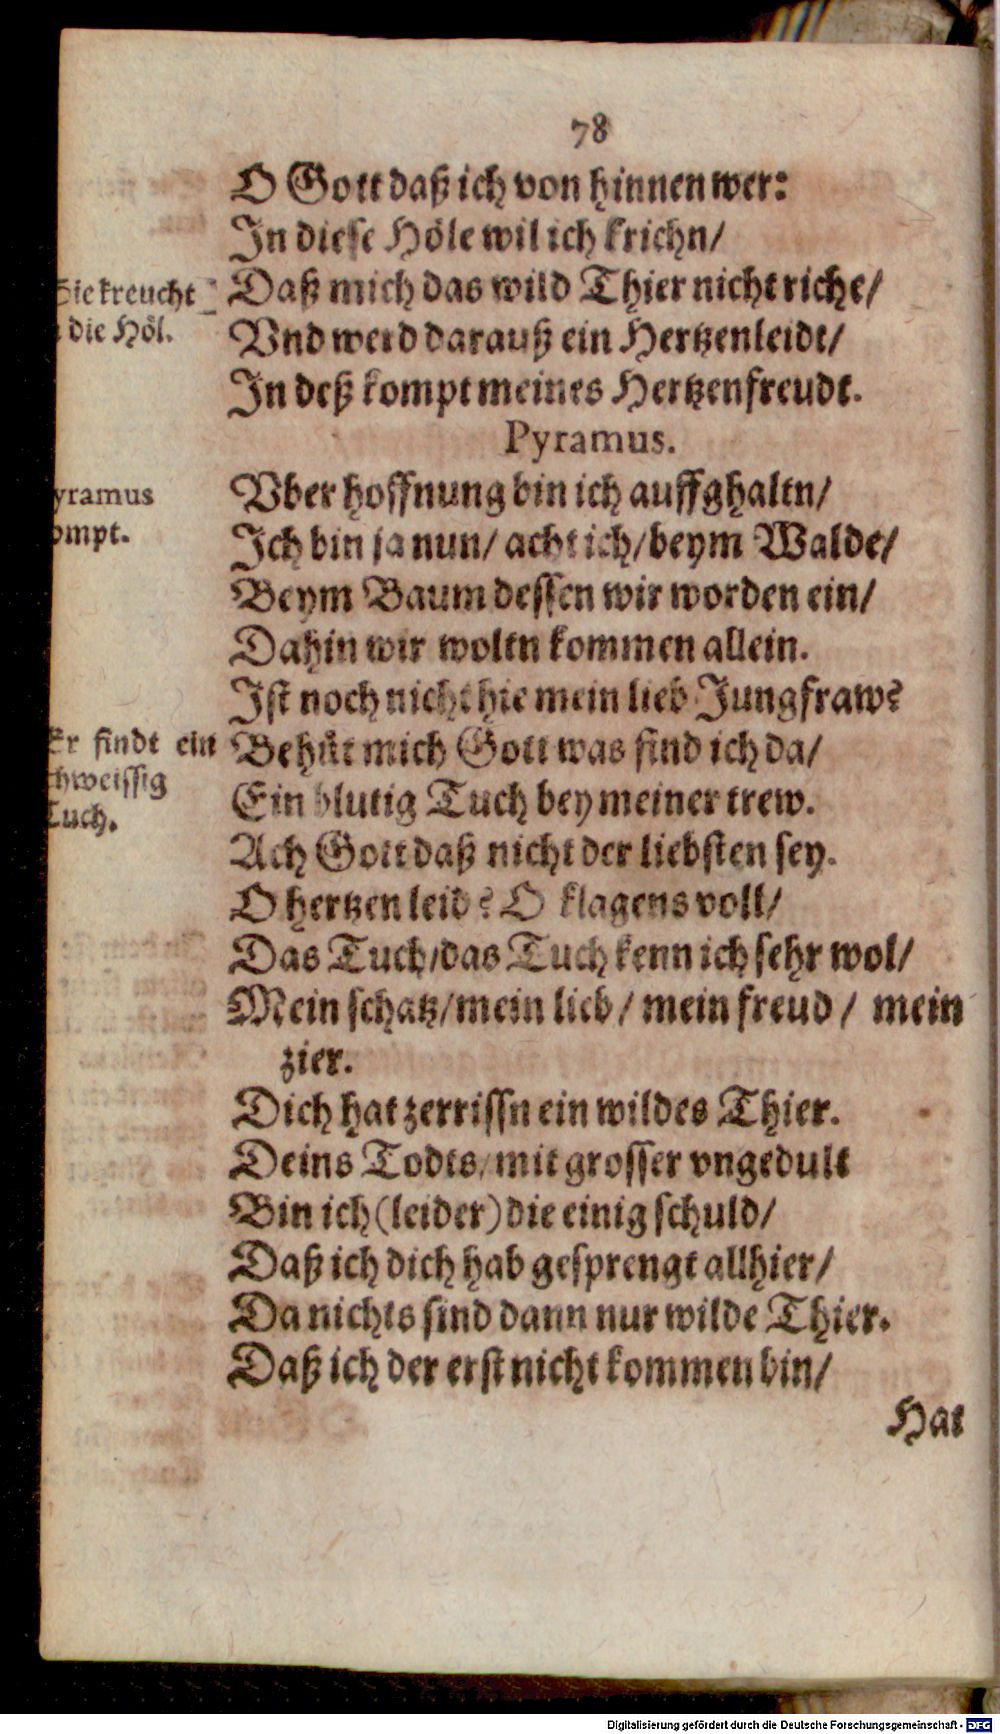 78
O Gott daß ich von hinnen wer:
In diese Höle wil ich krichn/
Sie kreucht
Daß mich das wild Thier nicht riche/
die Höl.
Vnd werd darauß ein Hertzenleidt/
In deß kompt meines Hertzenfreudt.
Pyramus.
yramus
Vber hoffnung bin ich auffghaltn/
ompt.
Ich bin ja nun/ acht ich/ beym Walde/
Beym Baum dessen wir worden ein/
Dahin wir woltn kommen allein.
Ist noch nicht hie mein lieb Jungfraw?
Er findt ein
Behüt mich Gott was find ich da/
chweissig
Ein blutig Tuch bey meiner trew.
Tuch.
Ach Gott daß nicht der liebsten sey.
O hertzen leid? O klagens voll/
Das Tuch/das Tuch kenn ich sehr wol/
Mein schatz/mein lieb/ mein freud/ mein
zier.
Dich hat zerrissn ein wildes Thier.
Deins Todts/ mit grosser vngedult
Bin ich (leider) die einig schuld/
Daß ich dich hab gesprengt allhier/
Da nichts sind dann nur wilde Thier.
Daß ich der erst nicht kommen bin/
Hat
Digitalisierung gefördert durch die Deutsche Forschungsgemeinschaft - DFG